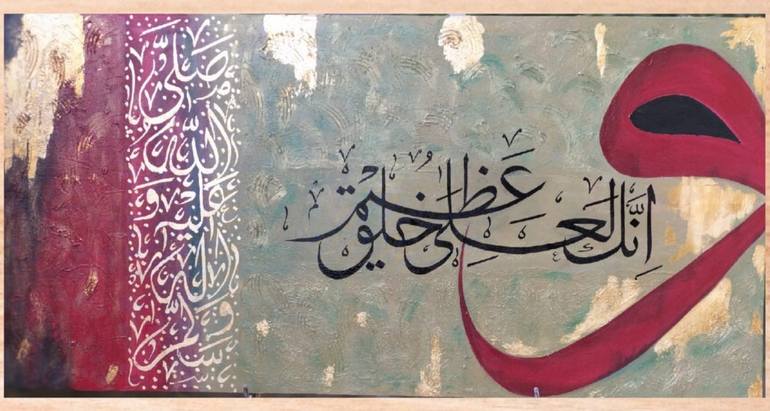 و
إنك لعلى خلق عظيم
صلى
الله
عليه
و
اله
وسلم